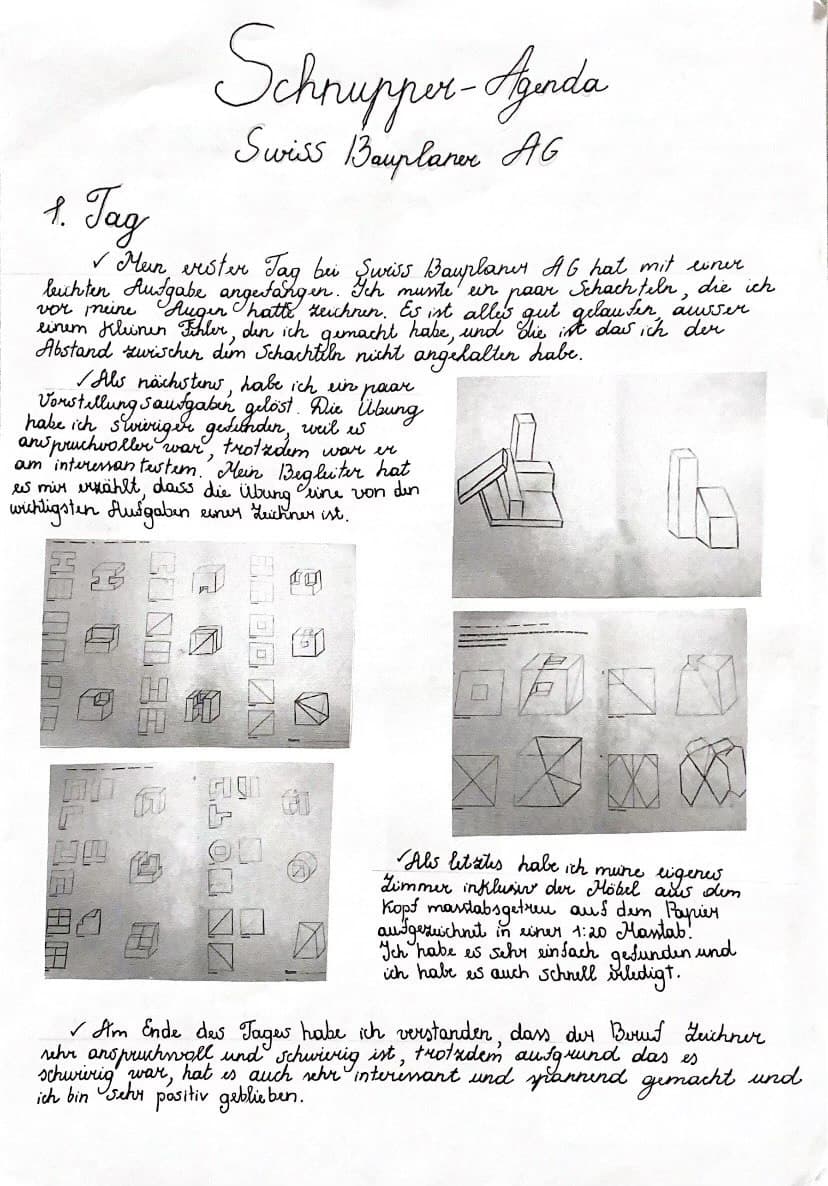 Schnupper-Agenda
Swiss Bauplaner AG
1. Tag
✓ Mein erster Tag bei Swiss Bauplaner AG hat mit einer
leichten Aufgabe angefangen. Ich musste ein paar Schachteln, die ich
vor meine Augen hatte zeichnen. Es ist alles gut gelaufen, ausser
einem kleinen Fehler, den ich gemacht habe, und die ist das ich der
Abstand zwischen dem Schachteln nicht angehalten habe.
✓ Als nächstens, habe ich ein paar
Vorstellungsaufgaben gelöst. Die Übung
habe ich swiriger gefunden, weil es
anspruchvoller war, trotzdem war er
am interessantestem. Mein Begleiter hat
es mir erzählt, dass die Übung eine von den
wichtigsten Aufgaben einer Zeichner ist.
✓ Als letztes habe ich meine eigenes
Zimmer inklusiv der Möbel aus dem
Kopf masstabsgetreu auf dem Papier
aufgezeichnet in einer 1:20 Masstab.
Ich habe es sehr einfach gefunden und
ich habe es auch schnell erledigt.
✓ Am Ende des Tages habe ich verstanden, dass der Beruf Zeichner
sehr anspruchvoll und schwierig ist, trotzdem aufgrund das es
schwirig war, hat es auch sehr interessant und spannend gemacht und
ich bin sehr positiv geblieben.